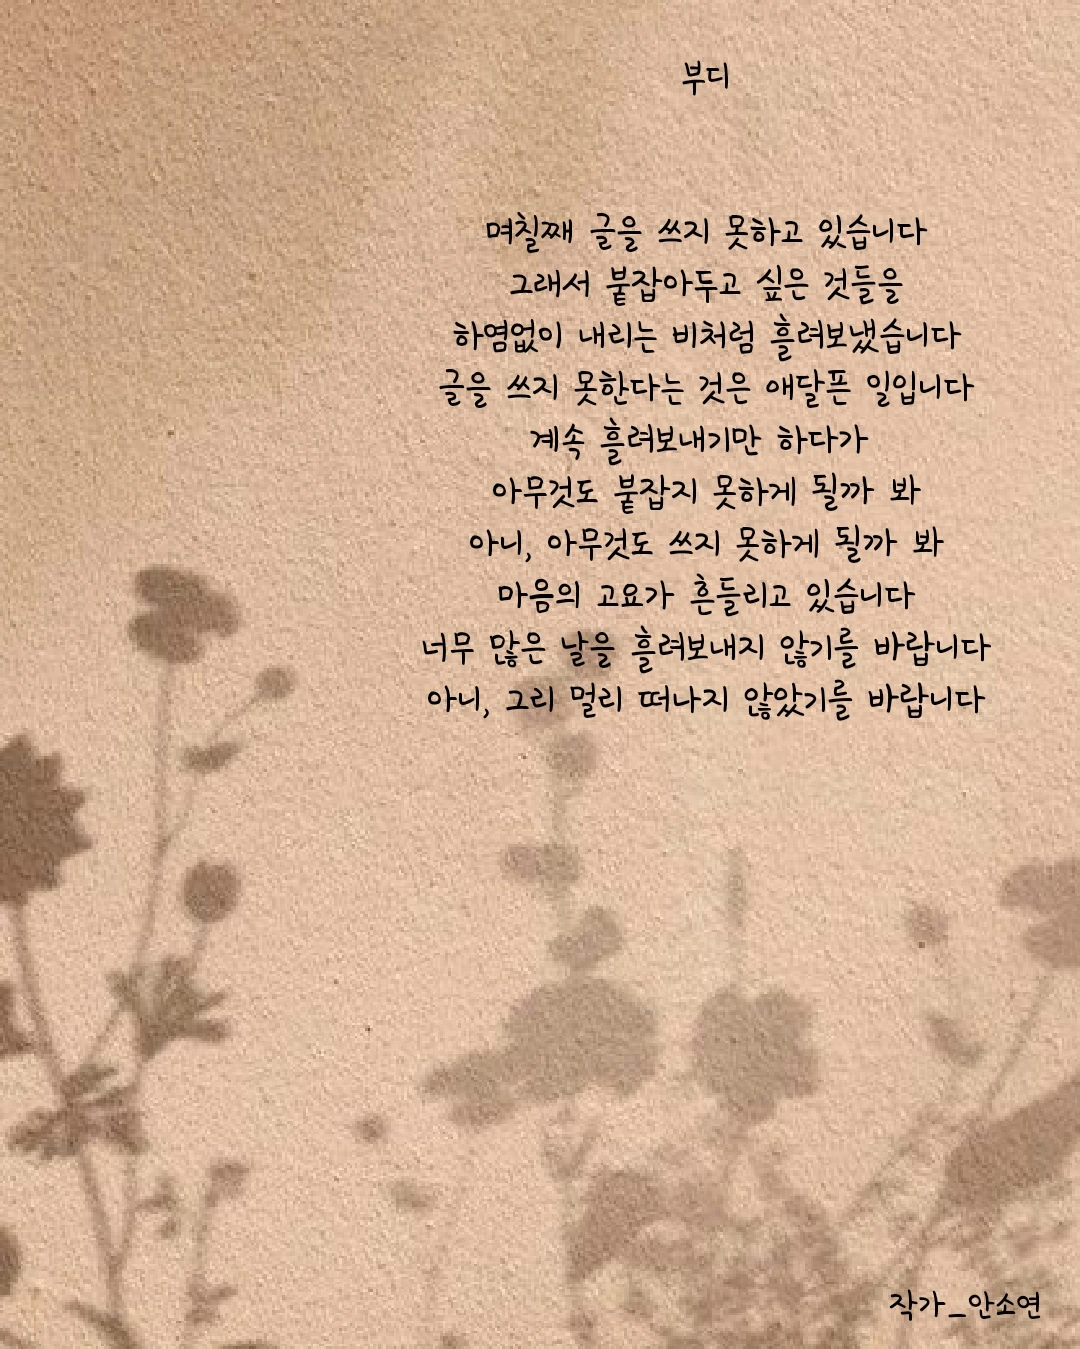 부디
며칠째 글을 쓰지 못하고 있습니다
그래서 붙잡아두고 싶은 것들을
하염없이 내리는 비처럼 흘려보냈습니다
글을 쓰지 못한다는 것은 애달픈 일입니다
계속 흘려보내기만 하다가
아무것도 붙잡지 못하게 될까 봐
아니, 아무것도 쓰지 못하게 될까 봐
마음의 고요가 흔들리고 있습니다
너무 많은 날을 흘려보내지 않기를 바랍니다
아니, 그리 멀리 떠나지 않았기를 바랍니다
작가_안소연